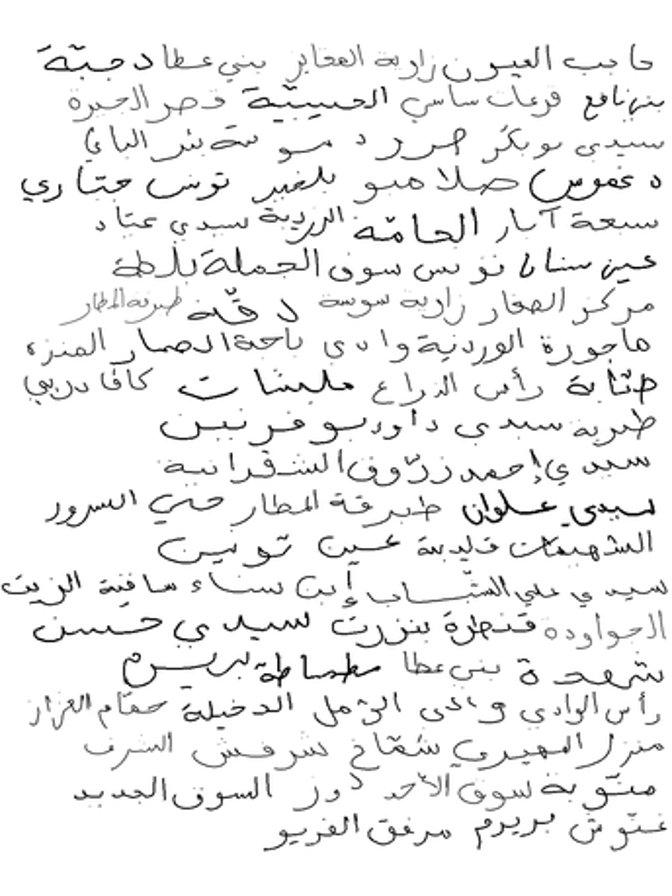 حاجب العيون زاوية المغايز بني عطا دجبّة
بنانافع قرعات ساسي الحسينيّة قصر الجيرة
سيدي بوبكر حررد مو تة بئر الباي
دغفوس صلامبو بلغير تونس ختاري
سبعة آبار الحامّة الزردية سيدي عبّاد
عين سنان نويس سوق الجملة بلطة
مركز الصغار زاوية سوسة دقّة طبربة المطار
ماجورة الوردنية وادي باجة الصمار المنزه
حنّابة رأس الذراع مليشات كاف دربي
طبربة سيدي داود بو فرنين
سيدي إحمد زرّوق الشقرانية
سيدي علوان طبرقة المطار حي السرور
الشهيمات قليبية عين تونين
سيدي علي الشبّاب إبن سناء ساقية الزيت
الجواودة قنطرة بنزرت سيدي حسن
شهدة بني عطا مطماطة بريرم
رأس الوادي وادي الرّمل الدخيلة حمّام الغزاز
منزل المهيري شمّاخ شرفش الشرف
منّوبة سوق الأحد دوز السوق الجديد
غنّوش بريرم مرفق الفريو